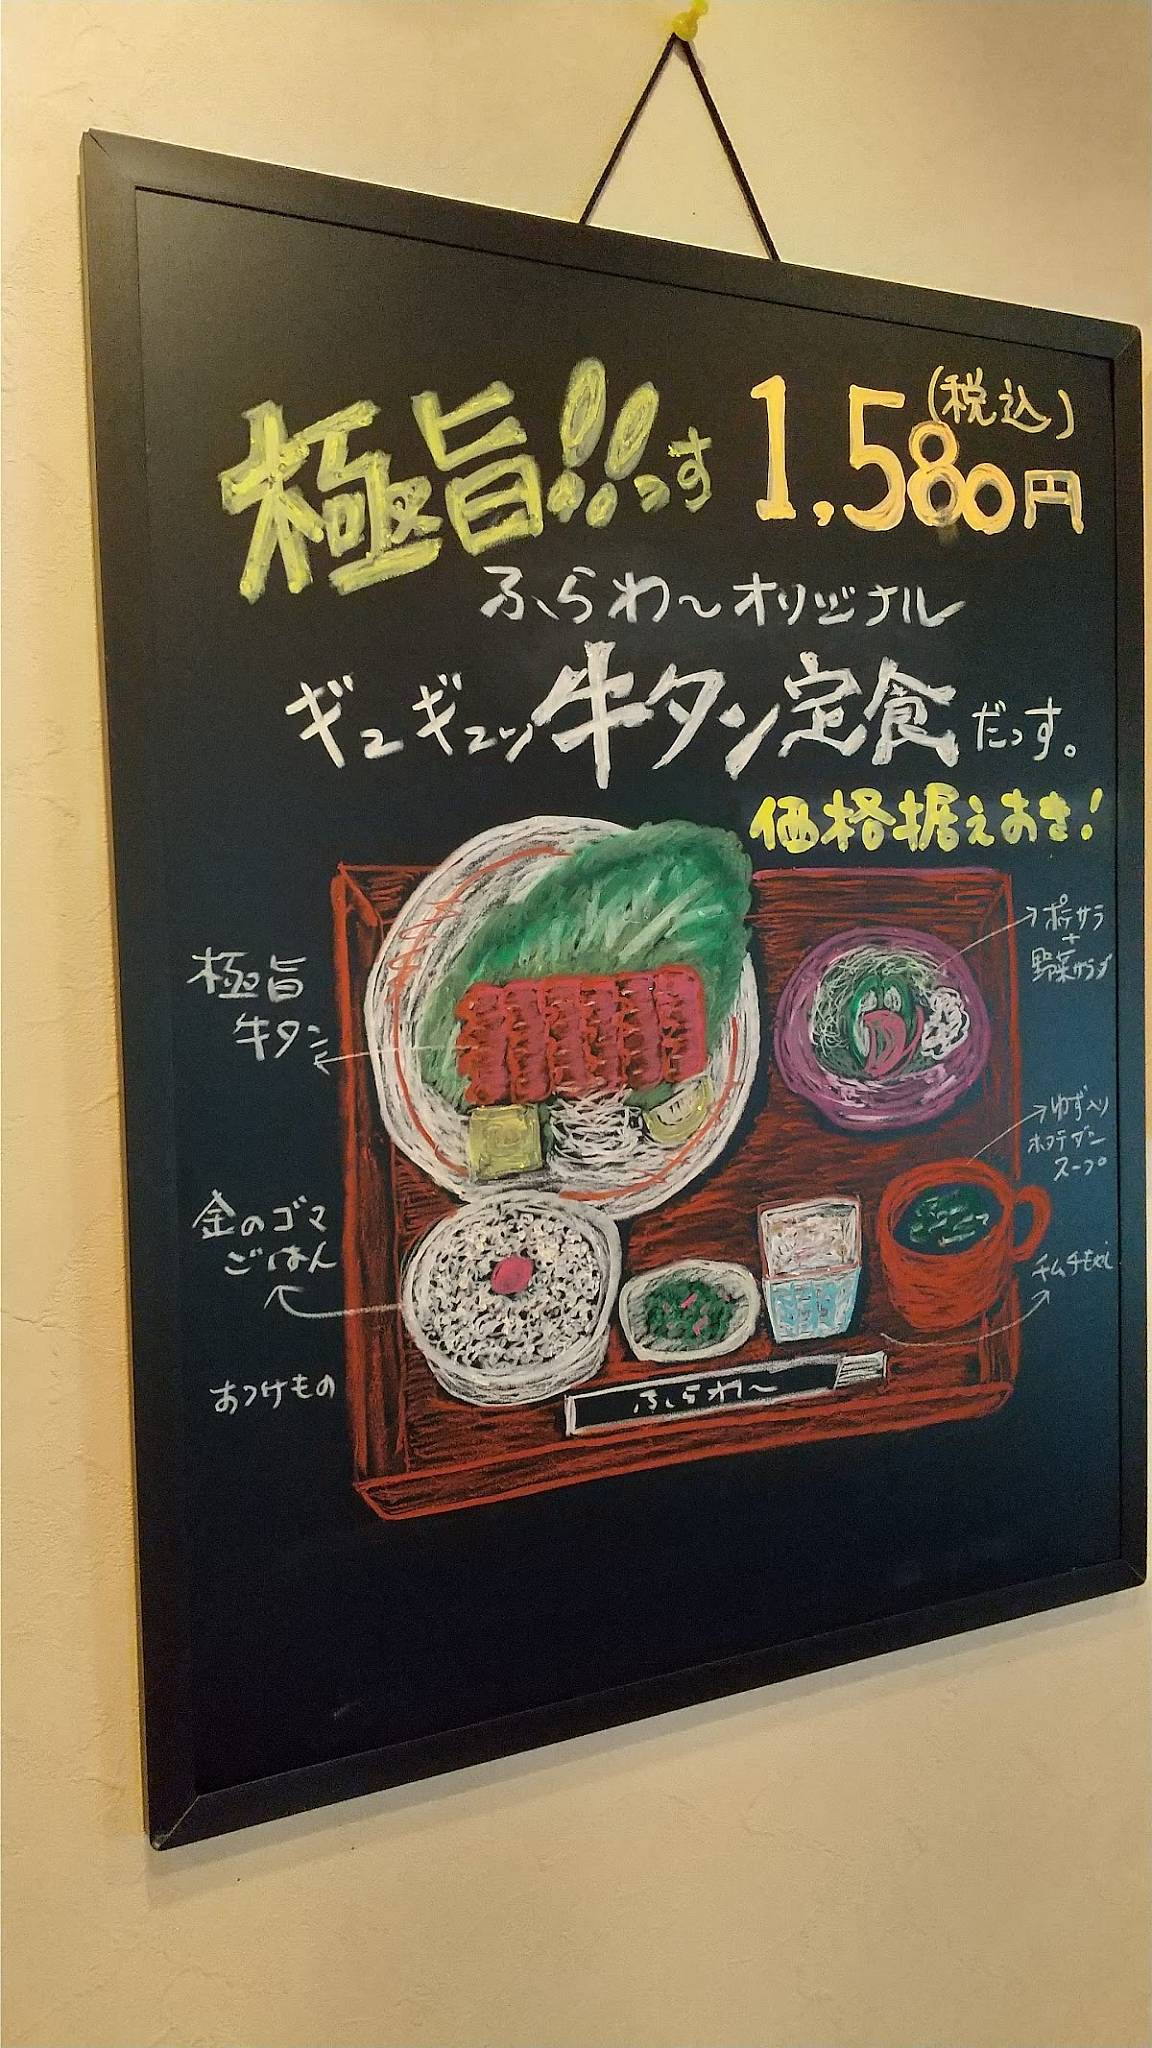 極旨!!っす
1,580円
(税込)
ふらわ〜オリジナル
ギューギューッ牛タン定食だっす。
価格据えおき!
極旨
牛タン
ポテサラ
+
野菜サラダ
ゆず入り
ホタテダシ
スープ
金のゴマ
ごはん
キムチもやし
おつけもの
ふらわ〜